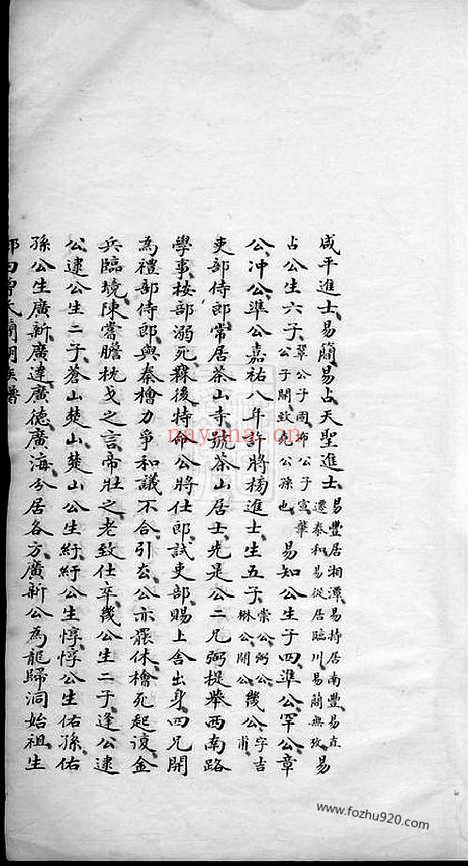 咸平進士易簡易占天聖進士易豐居湘潭易持居南豐易在遷泰和易從居臨川易簡無攷易
占公生六子鞏公子開致堯公孫也易知公生子四準公罕公章
公冲公準公嘉祐八年許將榜進士生五子棠公弼公楙公開公幾公字吉甫
吏部侍郎常居茶山寺號茶山居士先是公二兄弼提舉西南路
學事按部溺死無後特命公將仕郎試吏部賜上舍出身四兄開
為禮部侍郎與秦檜力爭和議不合引去公亦罷休檜死起復金
兵臨境陳嘗膽枕戈之言帝壯之老致仕卒幾公生二子逢公逮
公逮公生二子蒼山奘山奘山公生紆紆公生惇惇公生佑孫佑
孫公生廣新廣達廣德廣海分居各方廣新公為龍歸洞始祖生
nayana.cn
www.fozhu920.com